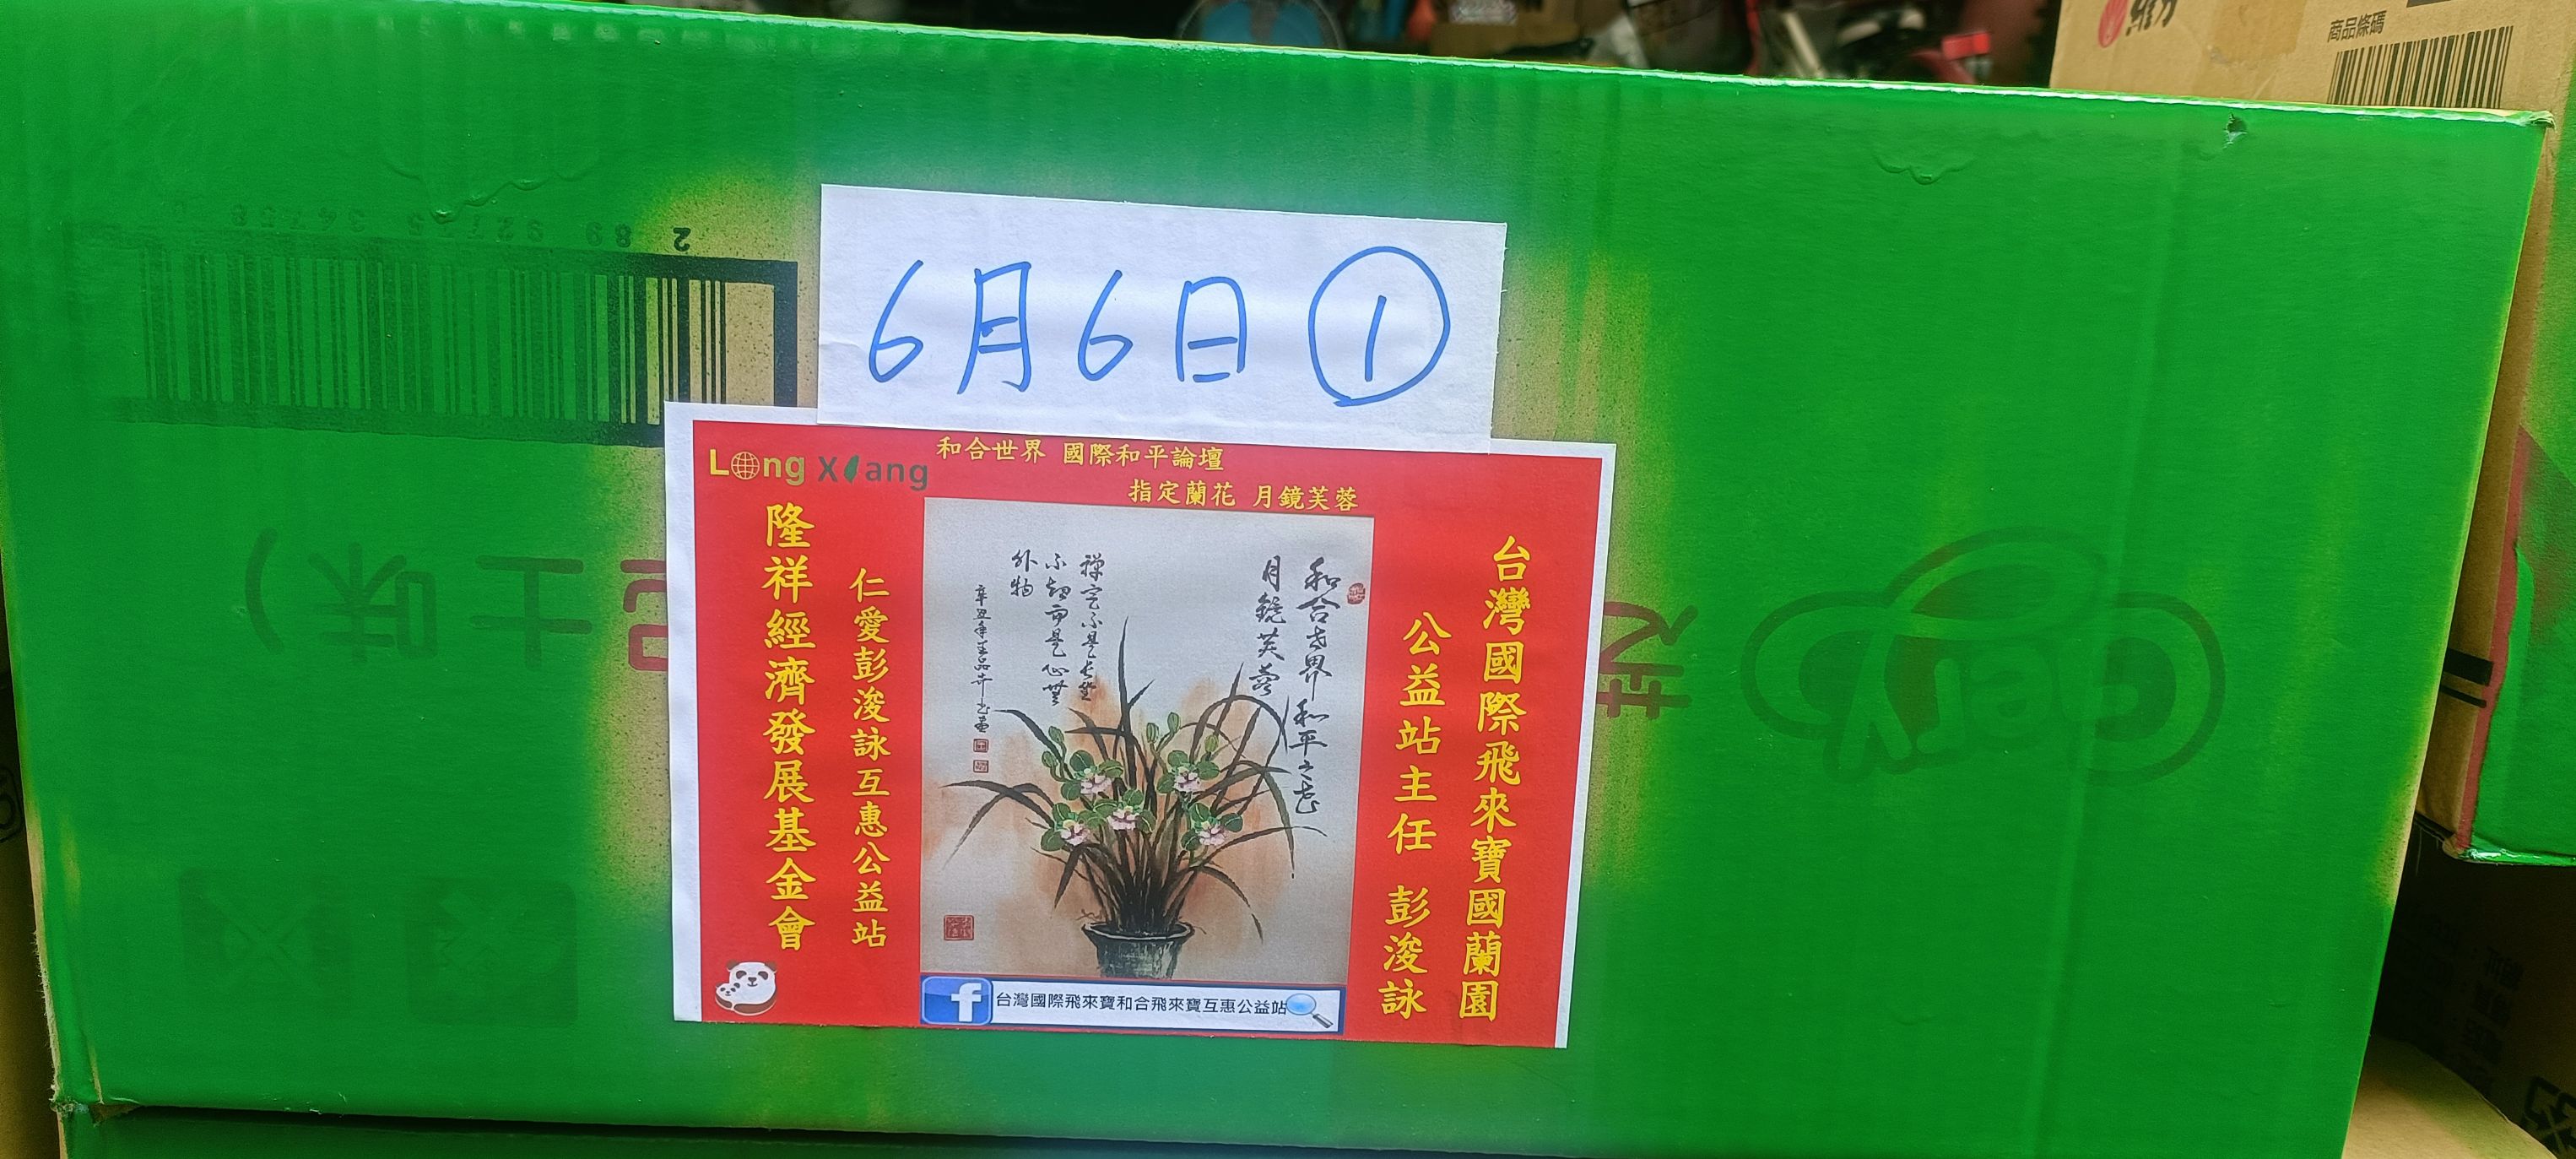 商品條碼
2
6月6日①
Long Xiang
和合世界 國際和平論壇
指定蘭花 月鏡芙蓉
台灣國際飛來寶國蘭園
公益站主任 彭浚詠
和合世界 和平之花
月鏡芙蓉
外物
仁愛彭浚詠互惠公益站
隆祥經濟發展基金會
台灣國際飛來寶和合飛來寶互惠公益站